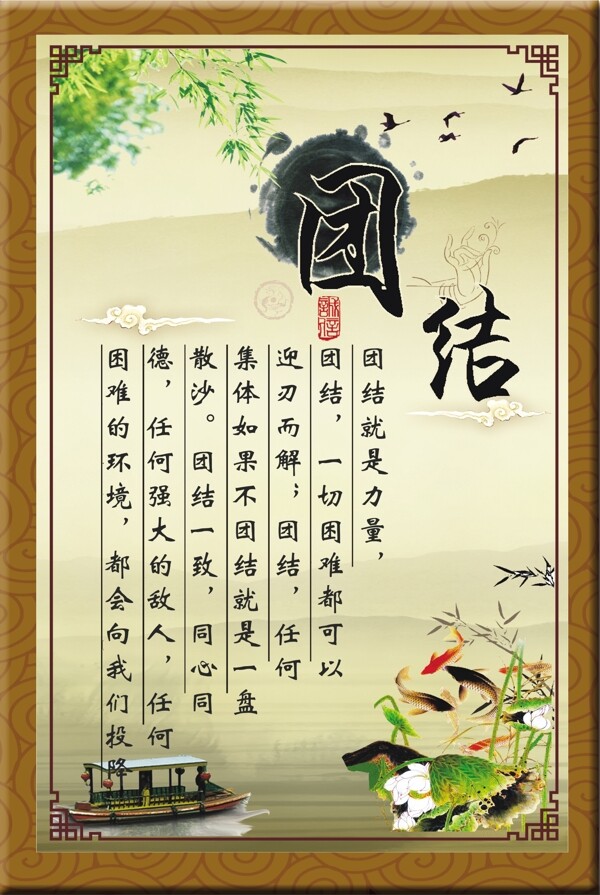 团结
诚信
团结就是力量，
团结，一切困难都可以
迎刃而解；团结，任何
集体如果不团结就是一盘
散沙。团结一致，同心同
德，任何强大的敌人，任何
困难的环境，都会向我们投降